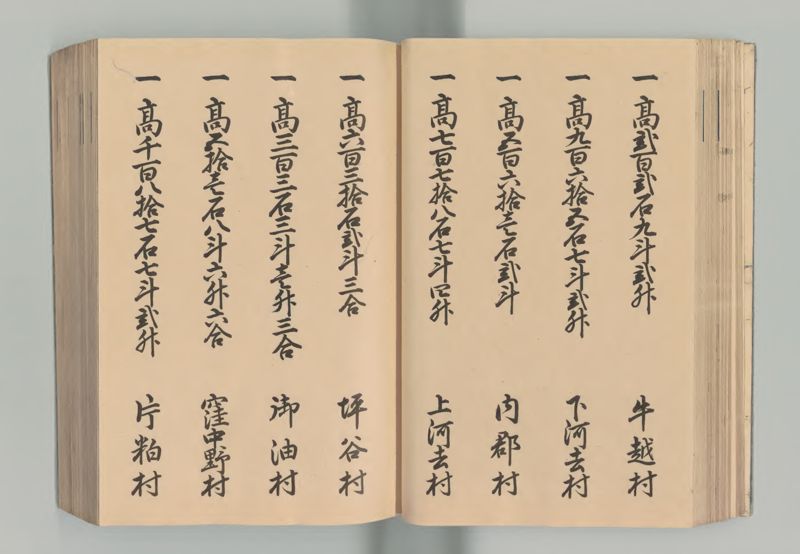 一 高弐百弐石九斗弐升 牛越村
一 高九百六拾五石七斗弐升 下河去村
一 高五百六拾壱石弐斗 内郡村
一 高七百七拾八石七斗四升 上河去村
一 高六百三拾石弐斗三合 坪谷村
一 高三百三石三斗壱升三合 御油村
一 高五拾壱石八斗六升六合 窪中野村
一 高千百八拾七石七斗弐升 片粕村